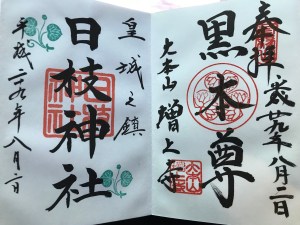 奉拝
平成廿九年八月二日
黒本尊
大本山 増上寺
皇城之鎮
日枝神社
平成二九年八月二日